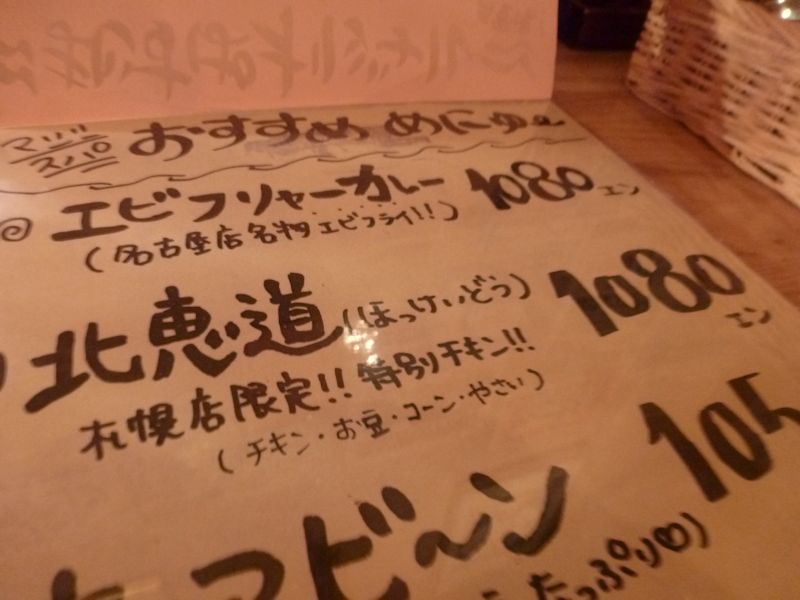 マジスパ おすすめ めにゅー
エビフリャーカレー 1080エン
(名古屋店名物エビフライ!!)
北恵道(ほっけいどう) 1080エン
札幌店限定!! 特別チキン!!
(チキン・お豆・コーン・やさい)
マビ〜ン 105
たっぷり♡)